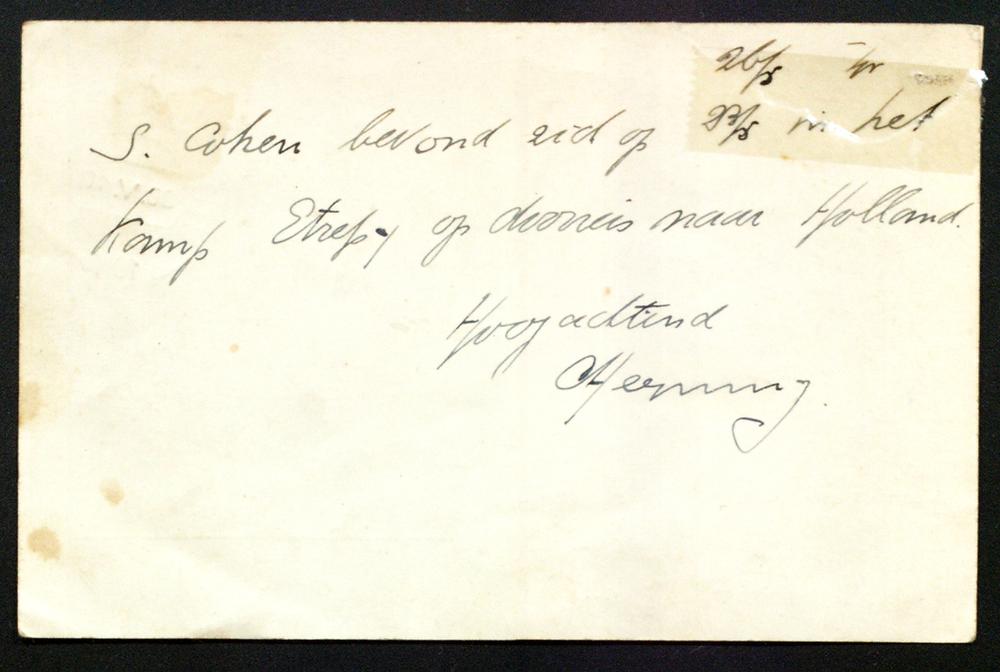 26/5
S. Cohen bevond zich op 23/5 in het
Kamp Etrépy op doorreis naar Holland.
Hoogachtend